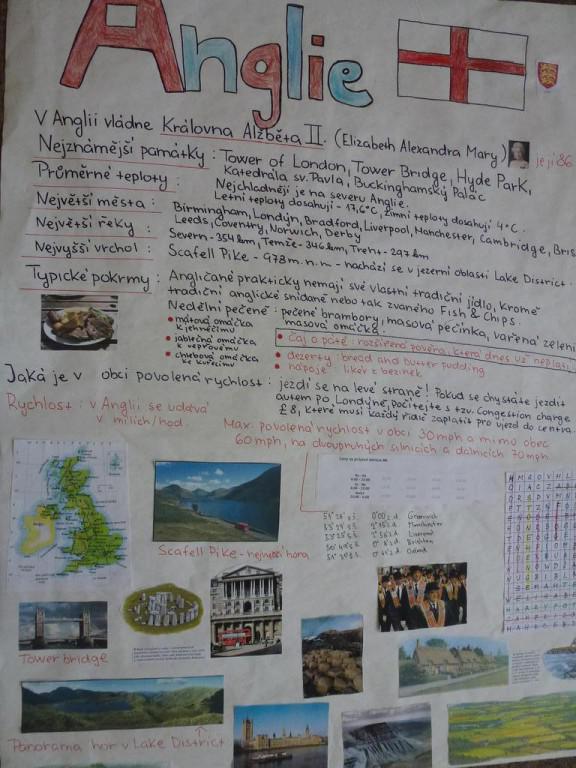 Anglie
V Anglii vládne Královna Alžběta II. (Elizabeth Alexandra Mary) je jí 86
Nejznámější památky: Tower of London, Tower Bridge, Hyde Park,
Katedrála sv. Pavla, Buckinghamský Palác
Průměrné teploty: Nejchladněji je na severu Anglie.
Letní teploty dosahují - 17,6°C, zimní teploty dosahují 4°C.
Největší města: Birmingham, Londýn, Bradford, Liverpool, Manchester, Cambridge, Bris
Leeds, Coventry, Norwich, Derby
Největší řeky: Severn - 354 km, Temže - 346 km, Trent - 297 km
Nejvyšší vrchol: Scafell Pike - 978 m.n.m - nachází se v jezerní oblasti Lake District.
Typické pokrmy: Angličané prakticky nemají své vlastní tradiční jídlo, kromě
tradiční anglické snídaně nebo tak zvaného Fish & Chips.
Nedělní pečeně: pečené brambory, masová pečínka, vařená zeleni
masová omáčka.
• mátová omáčka
k jehněčímu
• jablečná omáčka
k vepřovému
• chlebová omáčka
ke kuřecímu
• čaj o páté: rozšířená pověra, která dnes už neplatí
• dezerty: bread and butter pudding
• nápoje: likér z bezinek
Jaká je v obci povolená rychlost: jezdí se na levé straně! Pokud se chystáte jezdit
autem po Londýně, počítejte s tzv. Congestion charge
£8, které musí každý řidič zaplatit pro vjezd do centra.
Rychlost: v Anglii se udává
v mílích/hod.
Max. povolená rychlost v obci 30 mph a mimo obec
60 mph, na dvouproudých silnicích a dálnicích 70 mph
Scafell Pike - nejvyšší hora
Greenwich
Manchester
Liverpool
Brighton
Oxford
Tower bridge
Panorama hor v Lake District